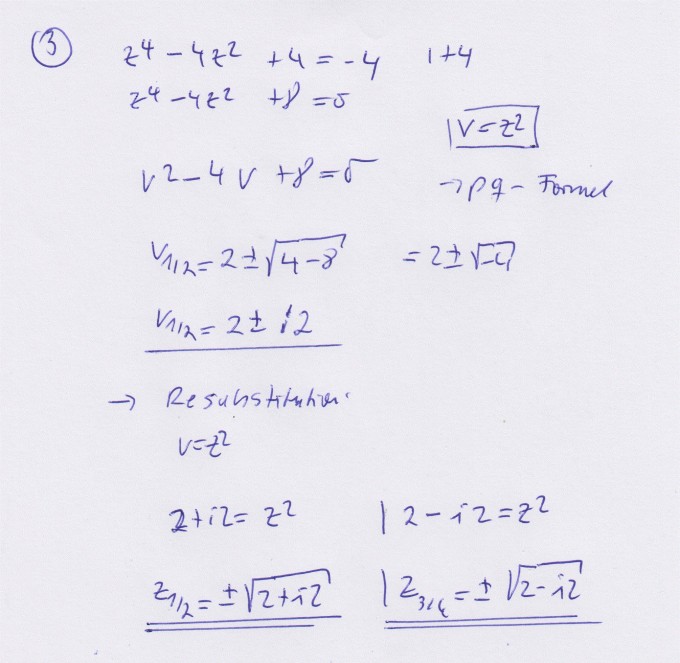 ③ z⁴ - 4z² + 4 = -4 | +4
z⁴ - 4z² + 8 = 0
| v = z²
v² - 4v + 8 = 0 → pq - Formel
v₁/₂ = 2 ± √(4-8) = 2 ± √-4
v₁/₂ = 2 ± i2
→ Resubstitution:
v = z²
2 + i2 = z² | 2 - i2 = z²
z₁/₂ = ± √(2+i2) | z₃/₄ = ± √(2-i2)